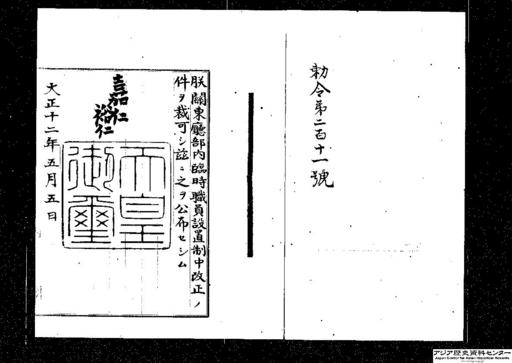 勅令第二百十一號
朕關東廳部内臨時職員設置制中改正ノ
件ヲ裁可シ茲ニ之ヲ公布セシム
嘉仁
裕仁
天皇
御璽
大正十二年五月五日
アジア歴史資料センター
Japan Center for Asian Historical Records